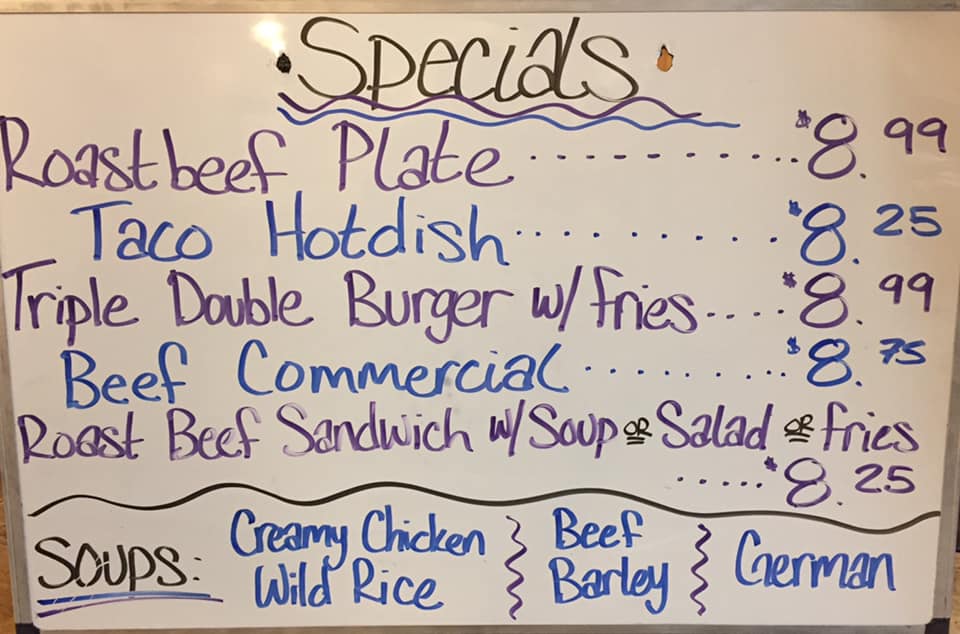 Specials
Roastbeef Plate ............ $8.99
Taco Hotdish .......... $8.25
Triple Double Burger w/ fries..... $8.99
Beef Commercial ......... $8.75
Roast Beef Sandwich w/ Soup OR Salad OR fries
...... $8.25
Soups: Creamy Chicken Wild Rice
Beef Barley
German